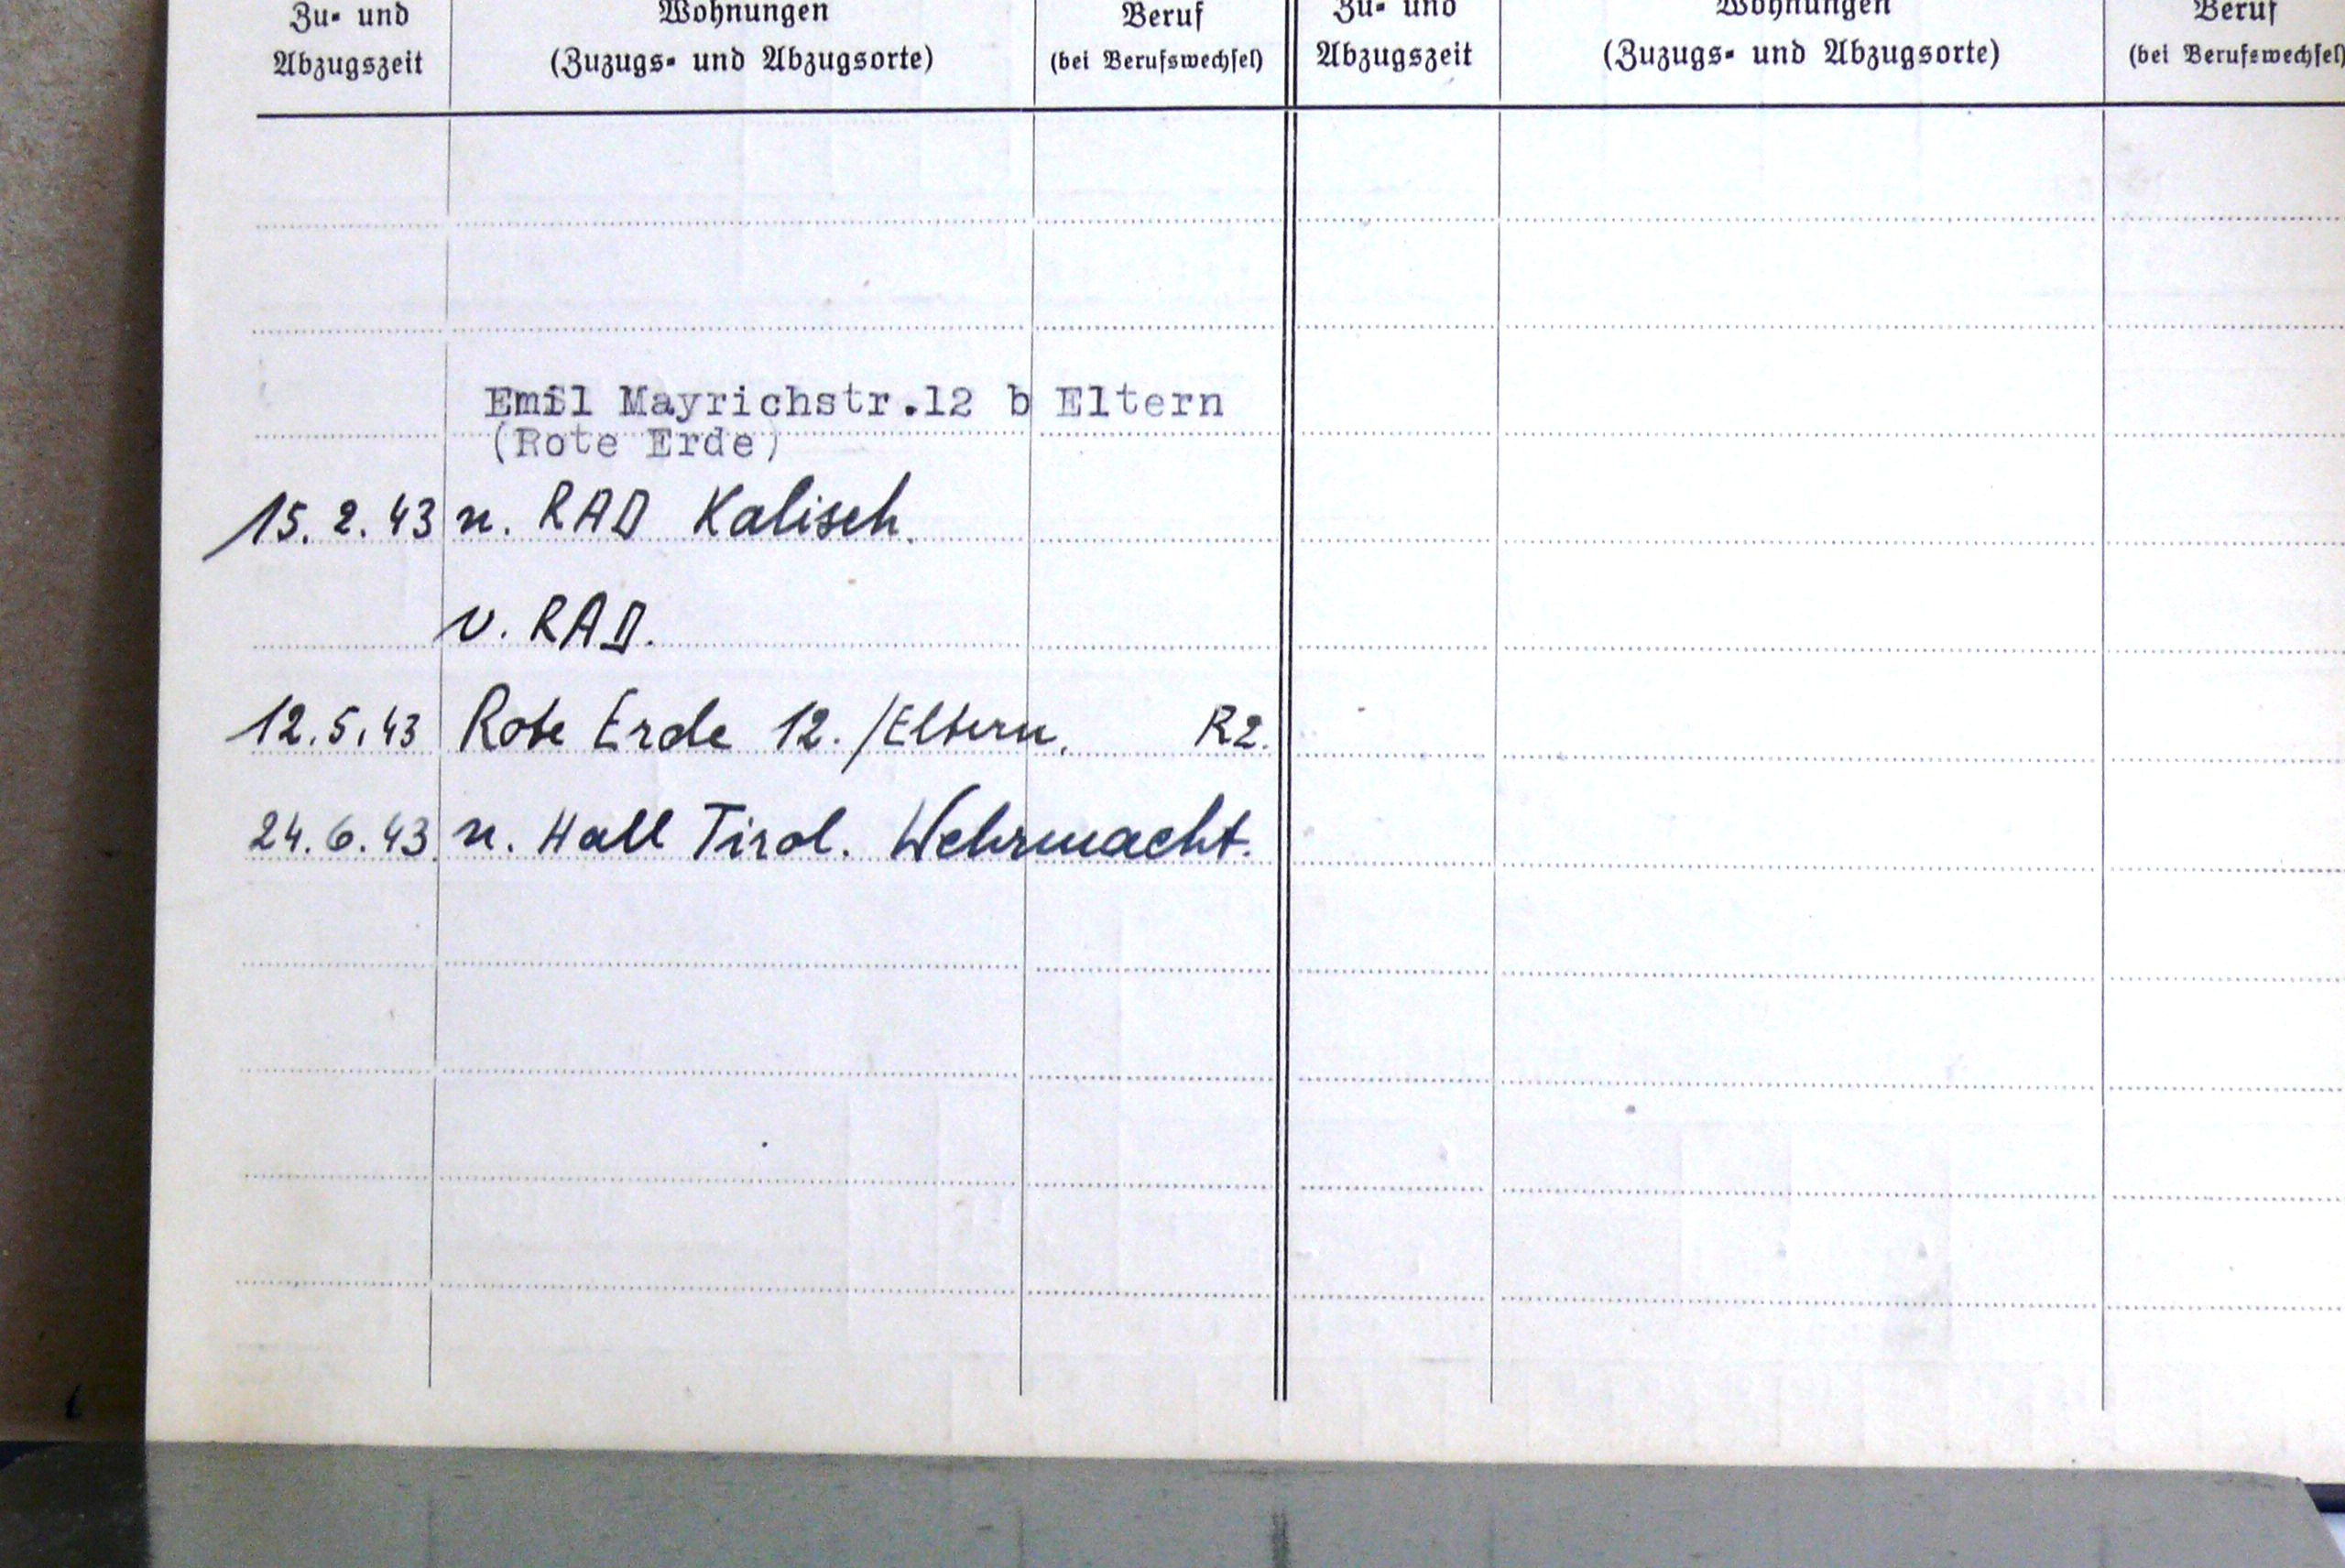 Zu- und
Abzugszeit
Wohnungen
(Zuzugs- und Abzugsorte)
Beruf
(bei Berufswechsel)
Zu- und
Abzugszeit
Wohnungen
(Zuzugs- und Abzugsorte)
Beruf
(bei Berufswechsel)
Emil Mayrichstr.12 b Eltern
(Rote Erde)
15.2.43 n. RAD Kalisch.
v. RAD.
12.5.43 Rote Erde 12. /Eltern. R2.
24.6.43. n. Hall Tirol. Wehrmacht.